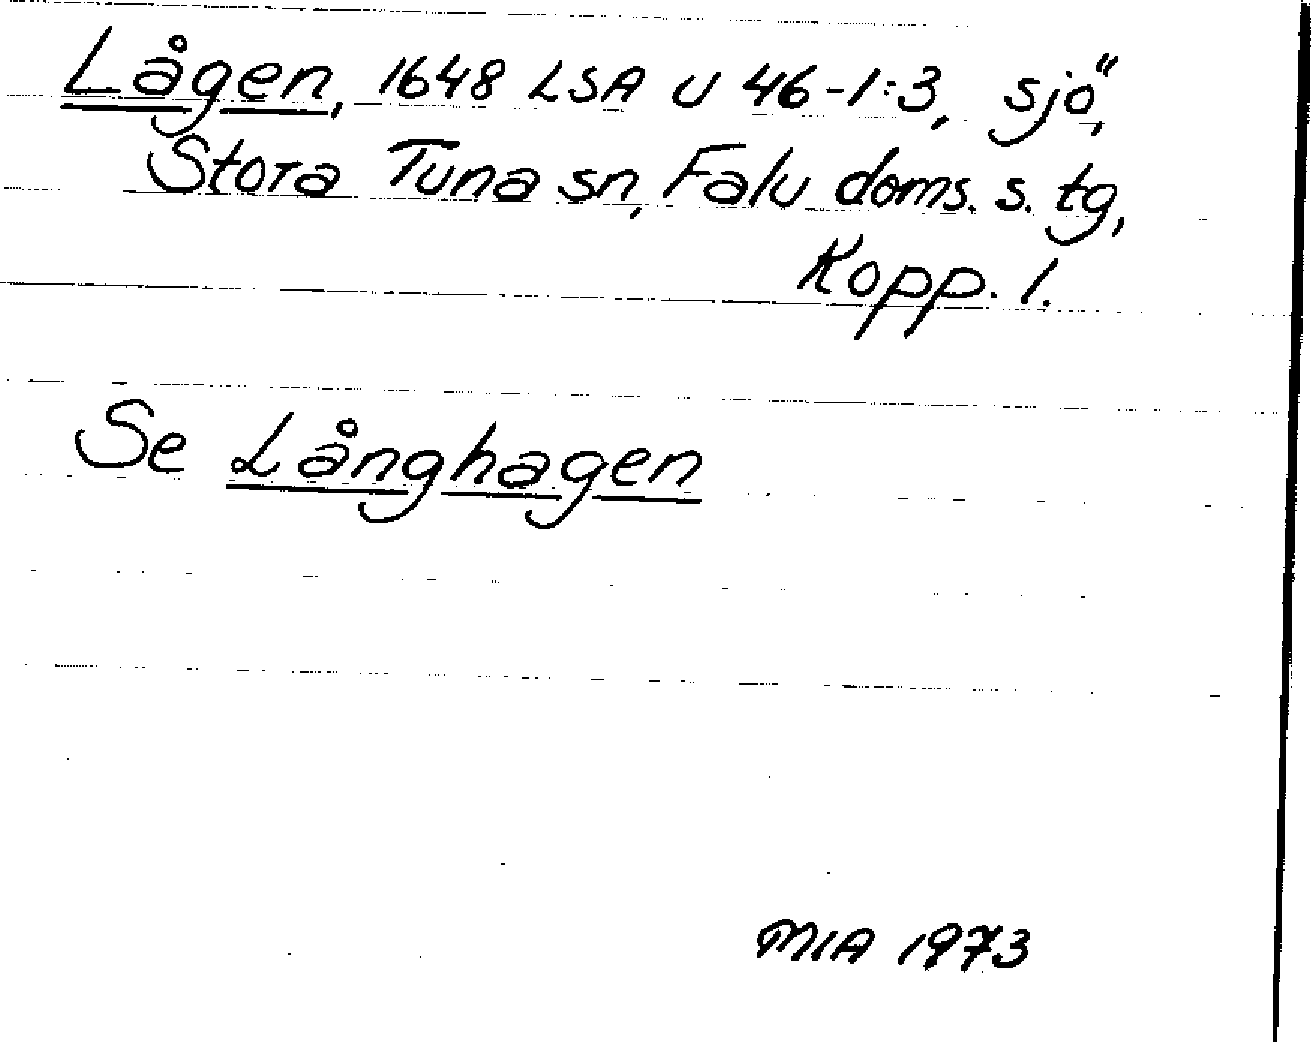 Lågen, 1648 LSA U 46-1:3, sjö,
Stora Tuna sn, Falu doms. s. tg,
Kopp. l.
Se Långhagen
MIA 1973